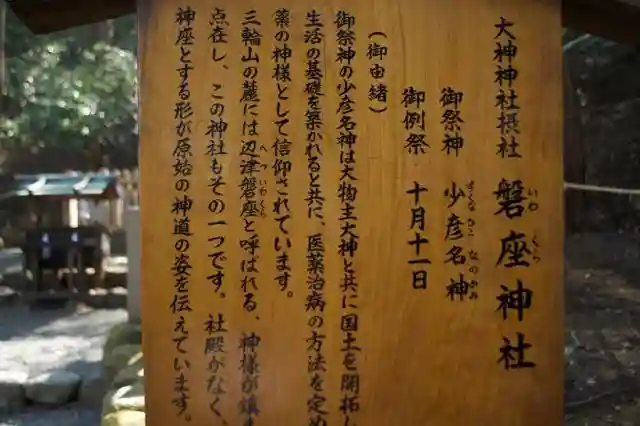 大神神社摂社 磐座神社
いわくら
御祭神 少彦名神
すくなひこなのかみ
御例祭 十月十一日
(御由緒)
御祭神の少彦名神は大物主大神と共に国土を開拓し
生活の基礎を築かれると共に、医薬治病の方法を定め
薬の神様として信仰されています。
三輪山の麓には辺津磐座と呼ばれる、神様が鎮ま
へついわくら
点在し、この神社もその一つです。社殿がなく、
神座とする形が原始の神道の姿を伝えています。